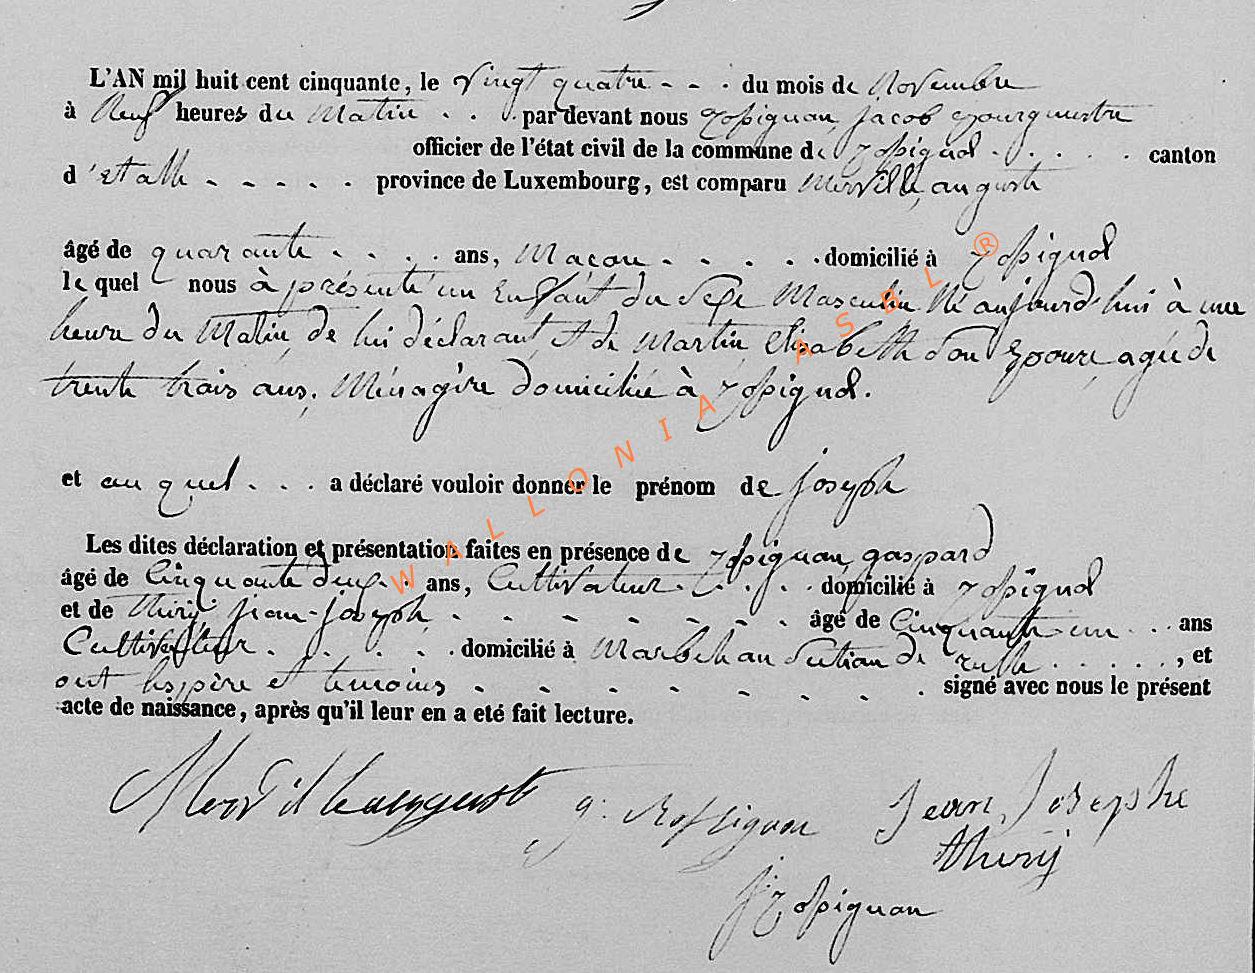 L'AN mil huit cent cinquante, le vingt quatre - - . du mois de Novembre
à Neuf heures du Matin . . . par devant nous Rossignon, jacob Bourguemestre
officier de l'état civil de la commune de Rossignol . . . . . canton
d'etalle - - - - . province de Luxembourg, est comparu Merville, auguste
âgé de quarante . . . . ans, Macon . . . . . domicilié à Rossignol
le quel nous à présenté un Enfant du Sexe Masculin Né aujourd'hui à une
heure du Matin, de lui déclarant, et de Martin, Elisabeth Son Epouse, agée de
trente trois ans, Ménagère domiciliée à Rossignol.
et au quel . . . a déclaré vouloir donner le prénom de joseph
Les dites déclaration et présentation faites en présence de Rossignon, gaspard
âgé de Cinquante deux . ans, Cultivateur . . . . domicilié à Rossignol
et de thiry, jean-joseph, - - - - - - - . âgé de Cinquante-un . . . ans
Cultivateur . . . . . domicilié à Marbehan Section de rulle . . . . . , et
ont les père et temoins - - - - - - . signé avec nous le présent
acte de naissance, après qu'il leur en a eté fait lecture.
auguste g: Rossignon Jean, Josephe
thiry
j Rossignon
WALLONIA ASBL ®